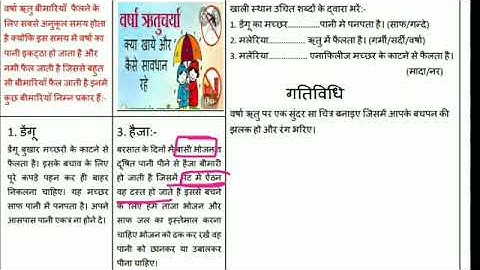 वर्षा ऋतु बीमारियाँ फैलने के
लिए सबसे अनुकूल समय होता
है क्योंकि इस समय में वर्षा का
पानी इकट्ठा हो जाता है और
नमी फैल जाती है जिससे बहुत
सी बीमारियाँ फैल जाती है इनमे
कुछ बीमारियाँ निम्न प्रकार हैं:-
वर्षा ऋतुचर्या
क्या खाये और
कैसे सावधान
रहे
1. डेंगू
डेंगू बुखार मच्छरों के काटने से
फैलता है। इसके बचाव के लिए
पूरे कपड़े पहन कर ही बाहर
निकलना चाहिए। यह मच्छर
साफ पानी में पनपता है। अपने
आसपास पानी एकत्र ना होने दे।
3. हैजा:-
बरसात के दिनों में बासी भोजन व
दूषित पानी पीने से हैजा बीमारी
हो जाती है जिसमें पेट में ऐंठन
वह दस्त हो जाते है इससे बचने
के लिए हमें ताजा भोजन और
साफ जल का इस्तेमाल करना
चाहिए भोजन को ढक कर रखें वह
पानी को छानकर या उबालकर
पीना चाहिए।
खाली स्थान उचित शब्दों के द्वारा भरें:-
1. डेंगू का मच्छर............पानी में पनपता है। (साफ/गन्दे)
2. मलेरिया............ ऋतु में फैलता है। (गर्मी/सर्दी/वर्षा)
3. मलेरिया............ एनाफिलीज मच्छर के काटने से फैलता है।
(मादा/नर)
गतिविधि
वर्षा ऋतु पर एक सुंदर सा चित्र बनाइए जिसमें आपके बचपन की
झलक हो और रंग भरिए।